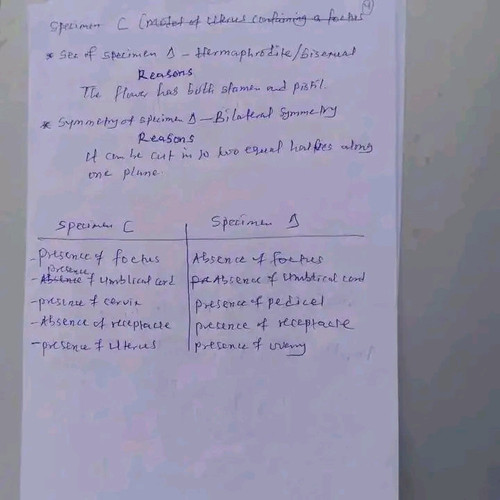 4
Specimen C (Model of Uterus containing a foetus
* Sex of specimen D - Hermaphrodite/Bisexual
Reasons
The flower has both stamen and pistil.
* Symmetry of specimen D - Bilateral symmetry
Reasons
It can be cut in to two equal halves along
one plane
Specimen C Specimen D
- Presence of foetus Absence of foetus
Presence
- Absence of Umbilical cord pre Absence of Umbilical cord
- presence of cervix presence of pedicel
- Absence of receptacle presence of receptacle
- presence of Uterus presence of ovary